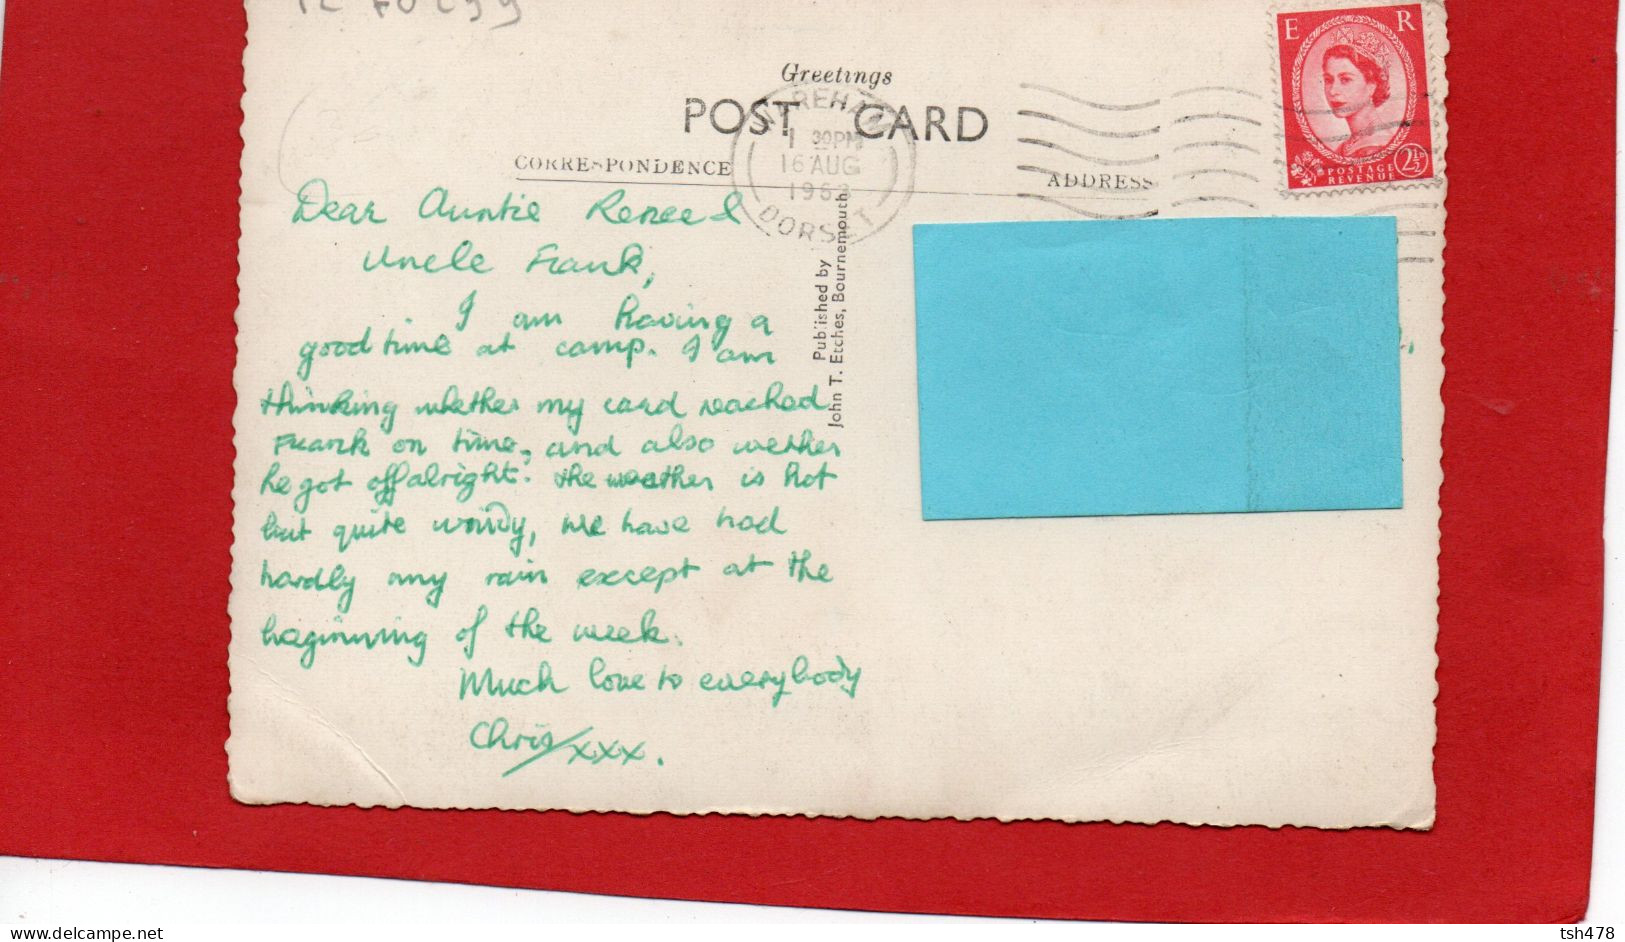 Greetings
POST CARD
CORRESPONDENCE
ADDRESS
WAREHAM
1 30PM
16 AUG
1963
DORSET
E R
POSTAGE
REVENUE
2½D
Published by
John T. Etches, Bournemouth
Dear Auntie Renee &
Uncle Frank,
I am having a
good time at camp. I am
thinking whether my card reached
Frank on time, and also wether
he got off alright. The weather is hot
but quite windy, we have had
hardly any rain except at the
beginning of the week.
Much love to everybody
Chris xxx.
delcampe.net
tsh478